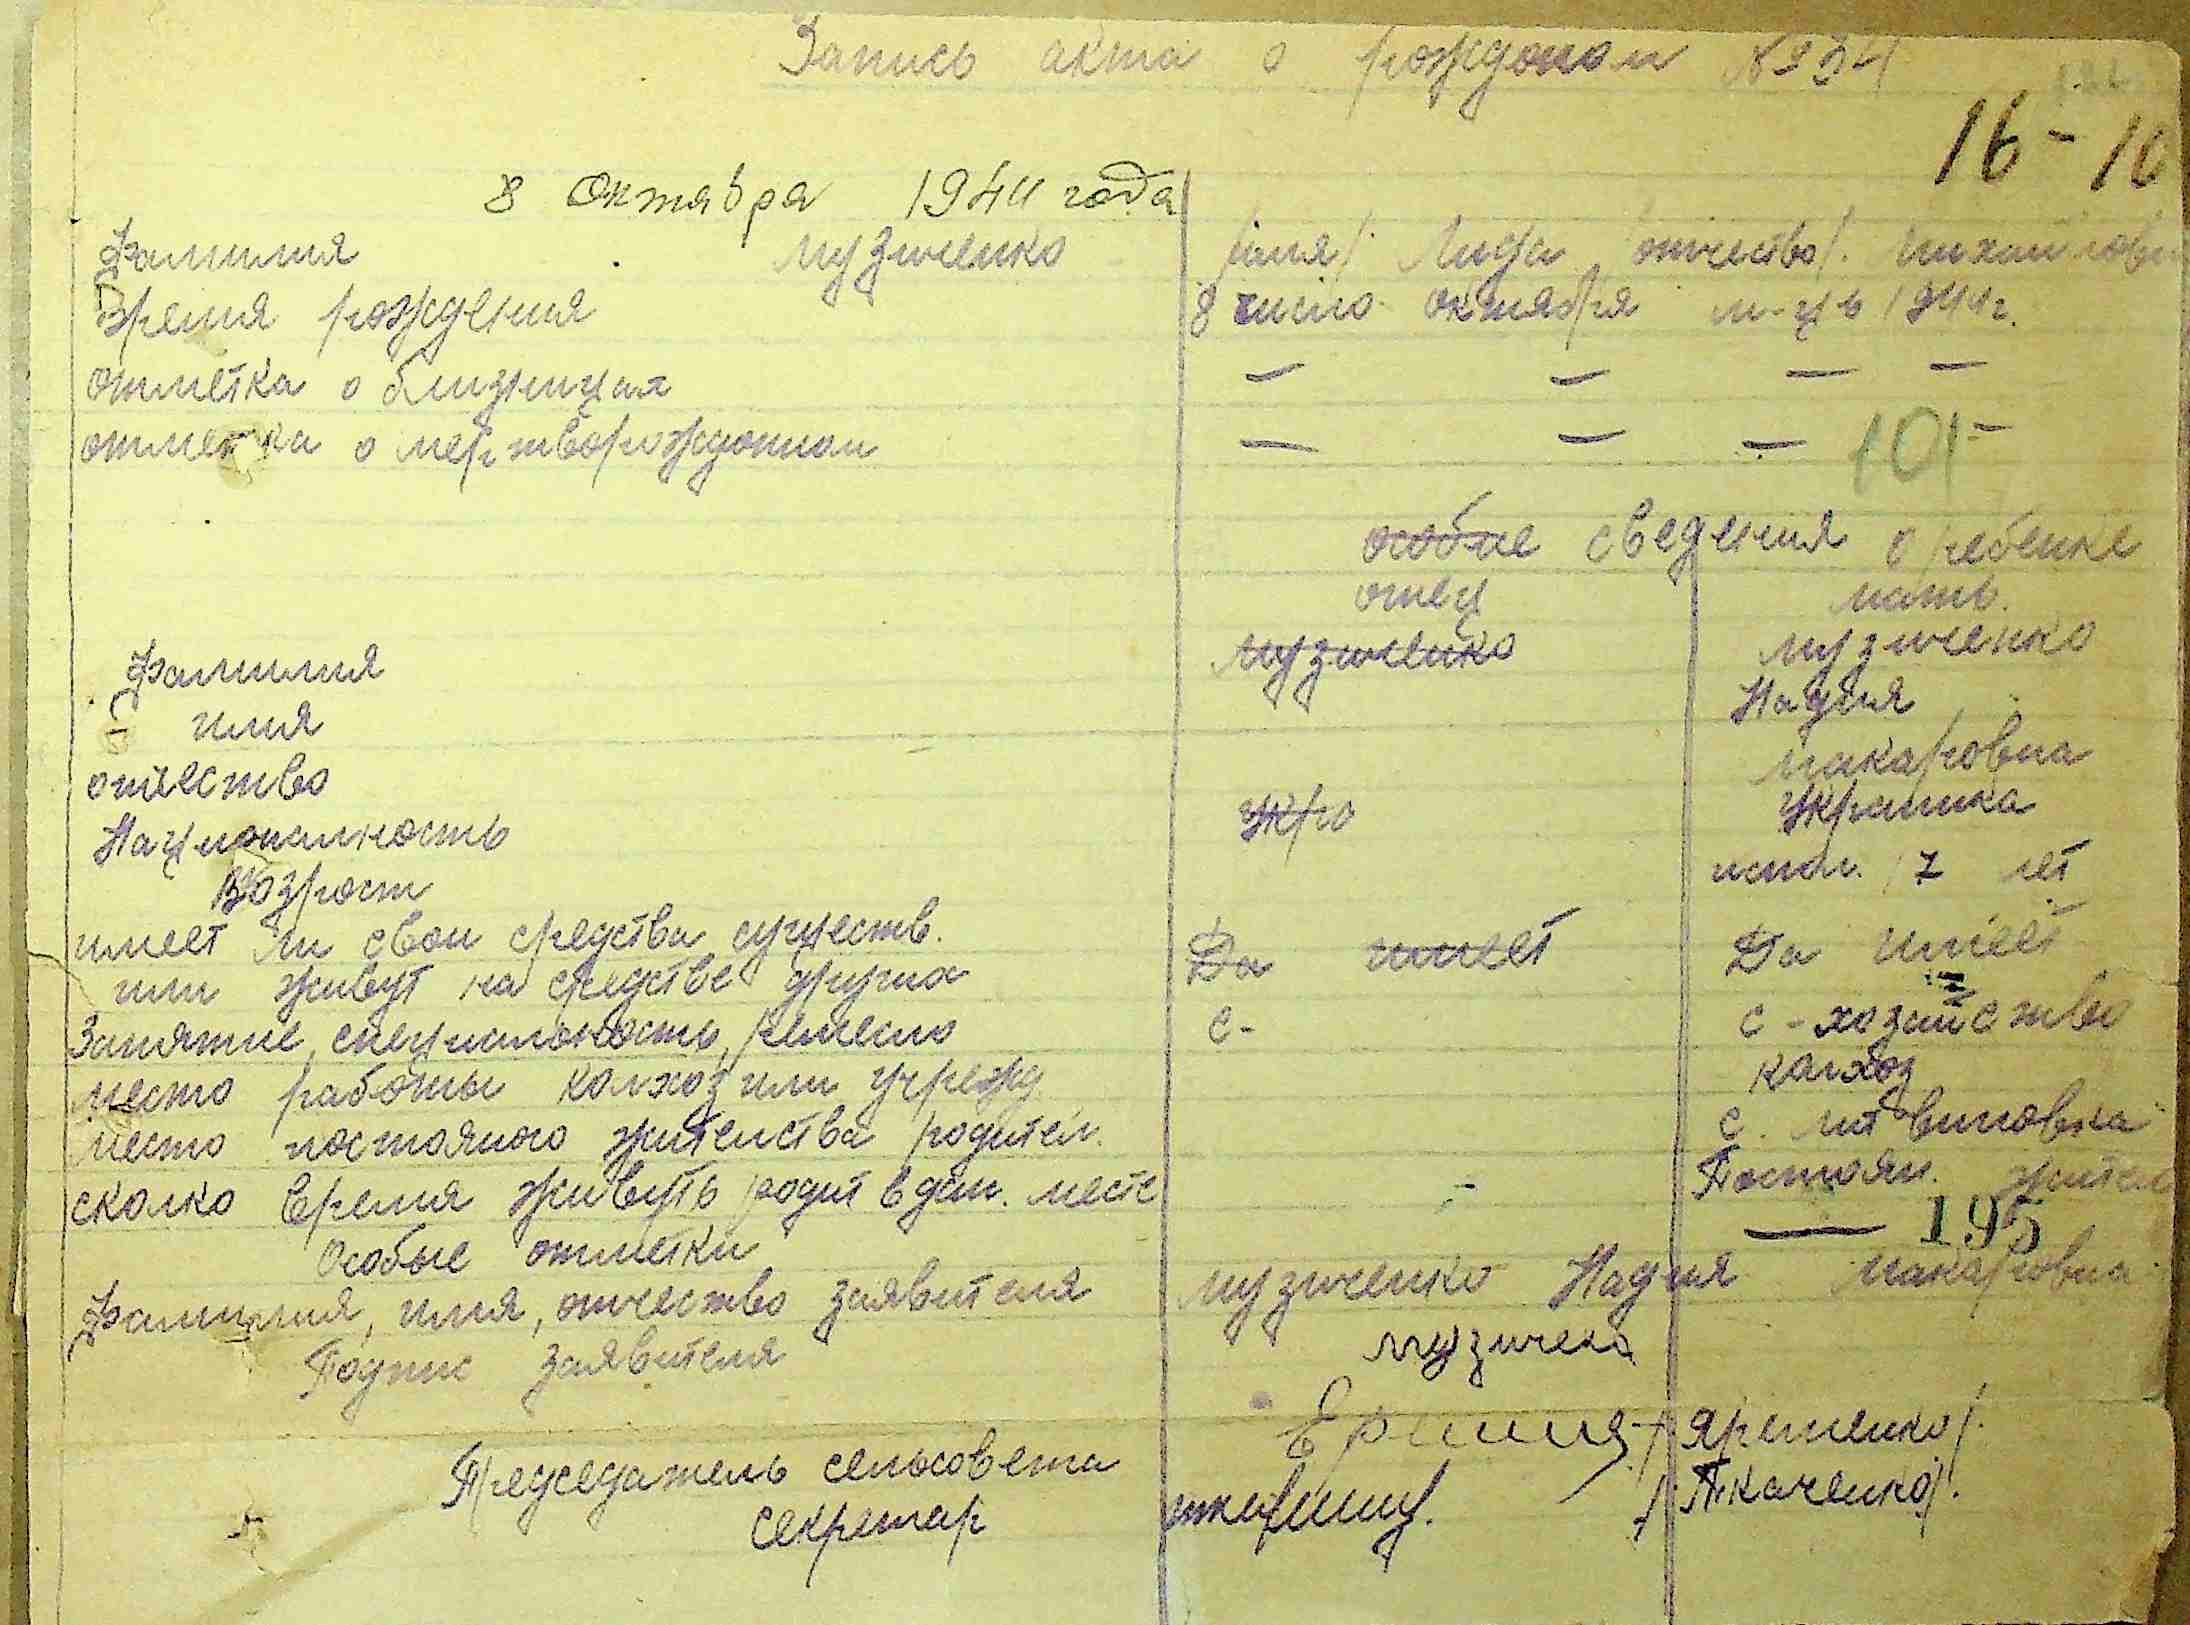 Запись акта о рожденом №34
16 - 16
8 Октября 1944 года
Фамилия Музиченко /имя/ Лида отчество/. Михайлов
Время рождения 8 число октября м-ць 1944 г.
отметка о близницах — — — —
отметка о мертворожденом — — — 101-
особые сведения о ребенке
отец мать.
Фамилия Музиченко Музиченко
имя Надия
отчество Макаровна
Национальность Укр Украинка
Возрост испол. 17 лет
имеет ли свои средства существ. Да имеет Да имеет
или живут на средстве других
Занятие, специалность, ремесло с- с-хозайство
место работы колхоз или учрежд. колхоз
место постояного жителства родител. с. Литвиновка
сколко время живуть родит в дан. месте - Постоян. жител
Особые отметки — 195
Фамилия, имя, отчество заявителя Музиченко Надия Макаровна
Подпис заявителя Музичеко
Председатель сельсовета /Яременко/.
секретар /Ткаченко/.